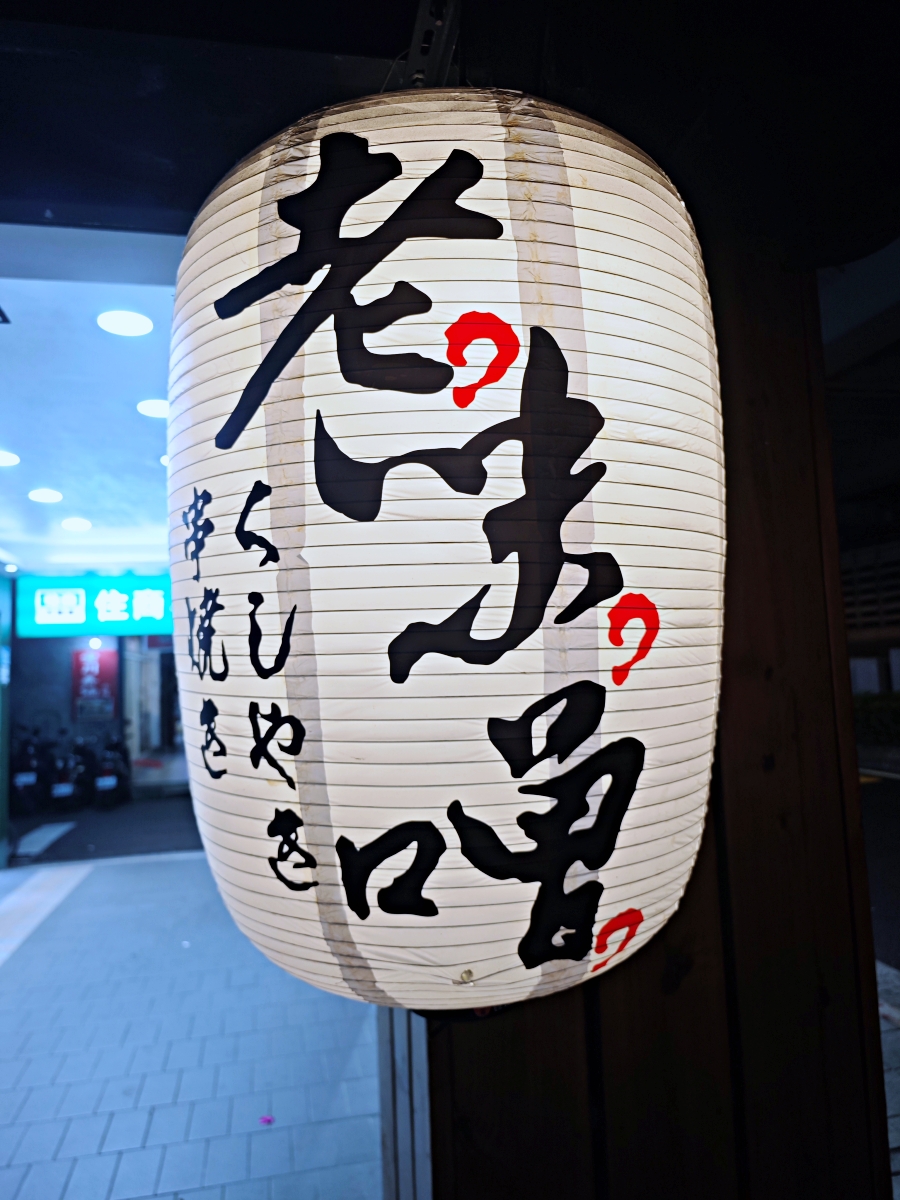 老味噌
くしやき
串焼き
住商